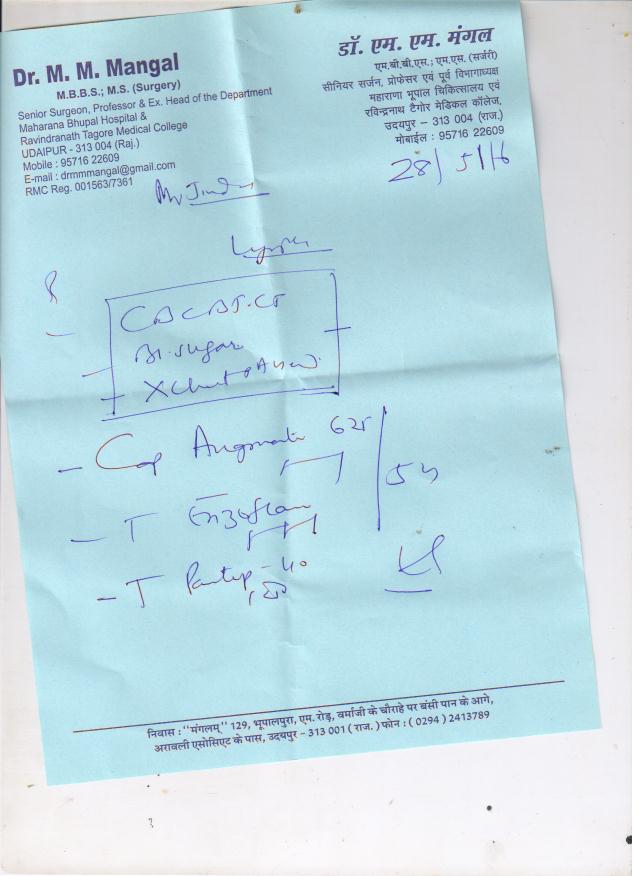 Dr. M. M. Mangal
M.B.B.S.; M.S. (Surgery)
Senior Surgeon, Professor & Ex. Head of the Department
Maharana Bhupal Hospital &
Ravindranath Tagore Medical College
UDAIPUR - 313 004 (Raj.)
Mobile : 95716 22609
E-mail : drmmmangal@gmail.com
RMC Reg. 001563/7361
डॉ. एम. एम. मंगल
एम.बी.बी.एस.; एम.एस. (सर्जरी)
सीनियर सर्जन, प्रोफेसर एवं पूर्व विभागाध्यक्ष
महाराणा भूपाल चिकित्सालय एवं
रविन्द्रनाथ टैगोर मेडिकल कॉलेज,
उदयपुर – 313 004 (राज.)
मोबाईल : 95716 22609
28/5/16
Bl. sugar
- Cap 625
- T
- T - 40
निवास : "मंगलम्" 129, भूपालपुरा, एम. रोड़, वर्माजी के चौराहे पर बंसी पान के आगे,
अरावली एसोसिएट के पास, उदयपुर - 313 001 (राज.) फोन : (0294) 2413789